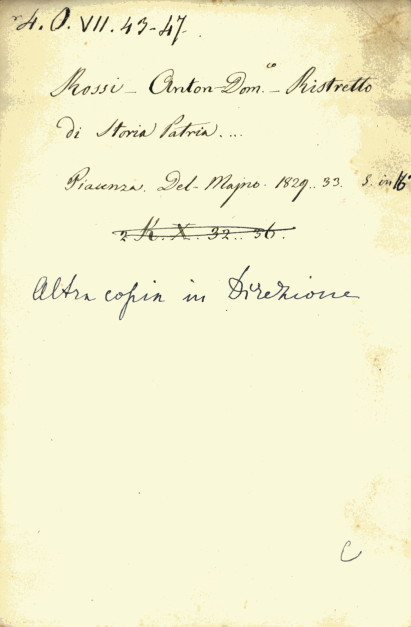 4. O. VII. 43-47.
Rossi - Anton-Dom.co - Ristretto
di Storia Patria. ...
Piacenza. Del-Majno. 1829.. 33. 5. in 16°
2 K. X. 32.. 36.
Altra copia in Direzione
C